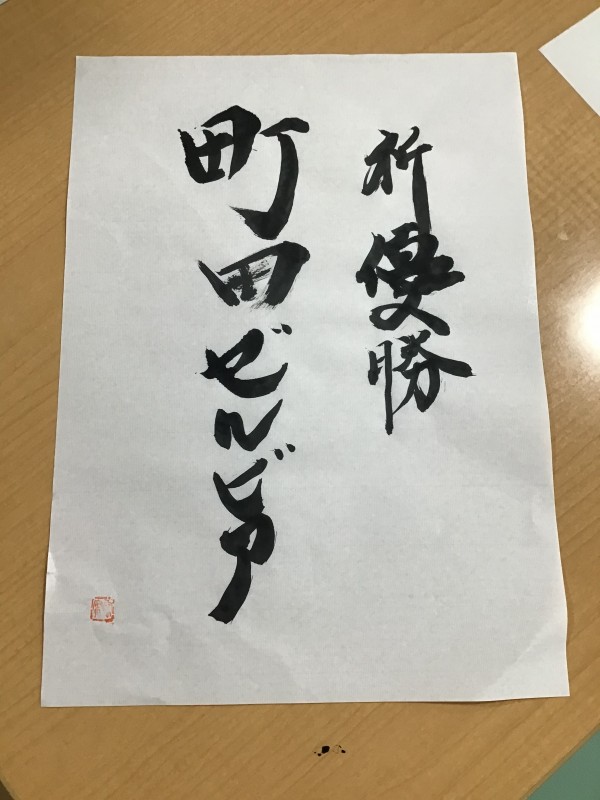 祈優勝
町田ゼルビア